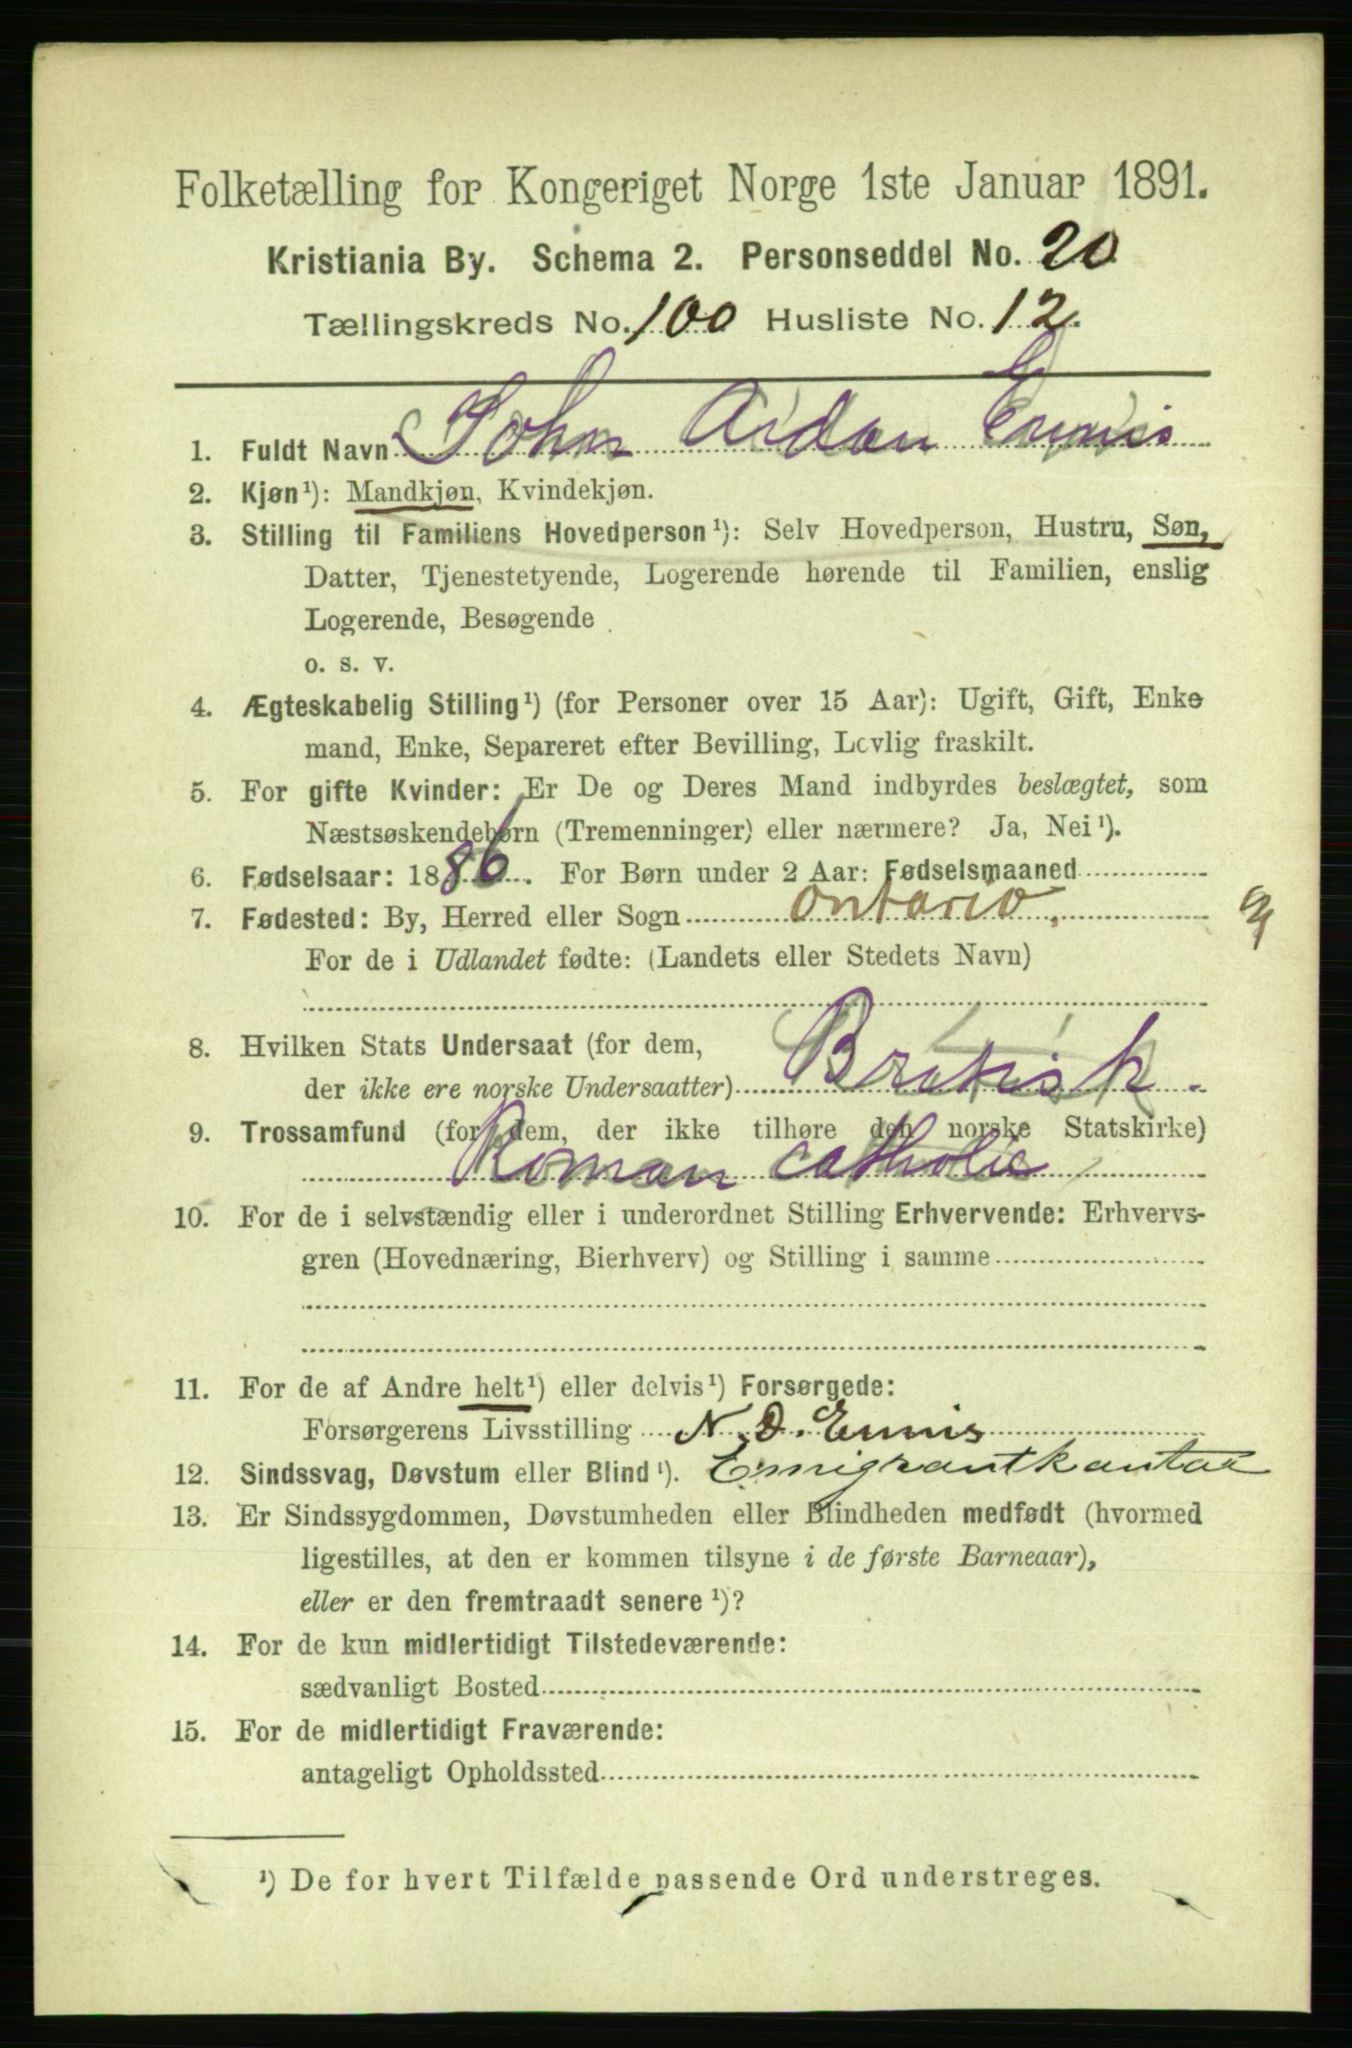 Folketælling for Kongeriget Norge 1ste Januar 1891.
Kristiania By. Schema 2. Personseddel No. 20
Tællingskreds No. 100 Husliste No. 12.
1. Fuldt Navn John Aidan Ennis
2. Kjøn¹): Mandkjøn, Kvindekjøn.
3. Stilling til Familiens Hovedperson¹): Selv Hovedperson, Hustru, Søn,
Datter, Tjenestetyende, Logerende hørende til Familien, enslig
Logerende, Besøgende
o. s. v.
4. Ægteskabelig Stilling¹) (for Personer over 15 Aar): Ugift, Gift, Enke
mand, Enke, Separeret efter Bevilling, Lovlig fraskilt.
5. For gifte Kvinder: Er De og Deres Mand indbyrdes beslægtet, som
Næstsøskendebørn (Tremenninger) eller nærmere? Ja, Nei¹).
6. Fødselsaar: 1886. For Børn under 2 Aar: Fødselsmaaned
7. Fødested: By, Herred eller Sogn Ontario,
For de i Udlandet fødte: (Landets eller Stedets Navn)
8. Hvilken Stats Undersaat (for dem,
der ikke ere norske Undersaatter) British
9. Trossamfund (for dem, der ikke tilhøre den norske Statskirke)
Roman catholic
10. For de i selvstændig eller i underordnet Stilling Erhvervende: Erhvervs-
gren (Hovednæring, Bierhverv) og Stilling i samme
11. For de af Andre helt¹) eller delvis¹) Forsørgede:
Forsørgerens Livsstilling N. D. Ennis
12. Sindssvag, Døvstum eller Blind¹). Emigrantkantor
13. Er Sindssygdommen, Døvstumheden eller Blindheden medfødt (hvormed
ligestilles, at den er kommen tilsyne i de første Barneaar),
eller er den fremtraadt senere¹)?
14. For de kun midlertidigt Tilstedeværende:
sædvanligt Bosted
15. For de midlertidigt Fraværende:
antageligt Opholdssted
¹) De for hvert Tilfælde passende Ord understreges.